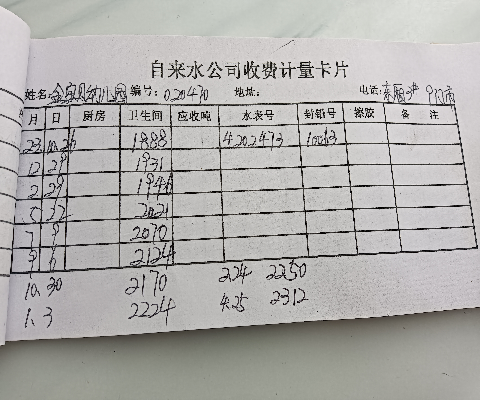 自来水公司收费计量卡片
姓名:金宝贝幼儿园 编号:020470 地址: 电话:
月 日 厨房 卫生间 应收吨 水表号 封铅号 擦胶 备 注
23 10.26 1888 4202473
12 29 1931
2 29 1946
5 22 2021
7 9 2070
9 6 2124
10. 30 2170 2.24 2250
1. 3 2224 4.25 2312